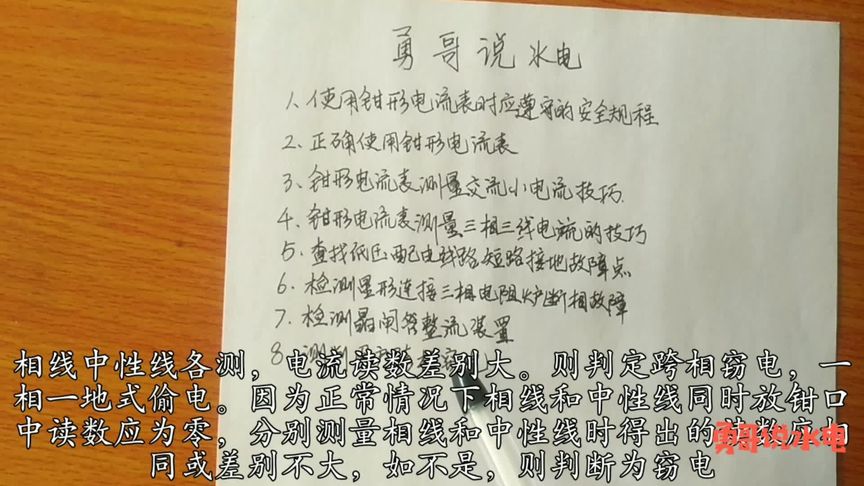 勇哥说水电
1、使用钳形电流表时应遵守的安全规程
2、正确使用钳形电流表
3、钳形电流表测量交流小电流技巧.
4、钳形电流表测量三相三线电流的技巧
5、查找低压配电线路短路接地故障点
6、检测星形连接三相电阻炉断相故障
7、检测晶闸管整流装置
8、
相线中性线各测，电流读数差别大。则判定跨相窃电，一
相一地式偷电。因为正常情况下相线和中性线同时放钳口
中读数应为零，分别测量相线和中性线时得出的读数应相
同或差别不大，如不是，则判断为窃电
勇哥说水电